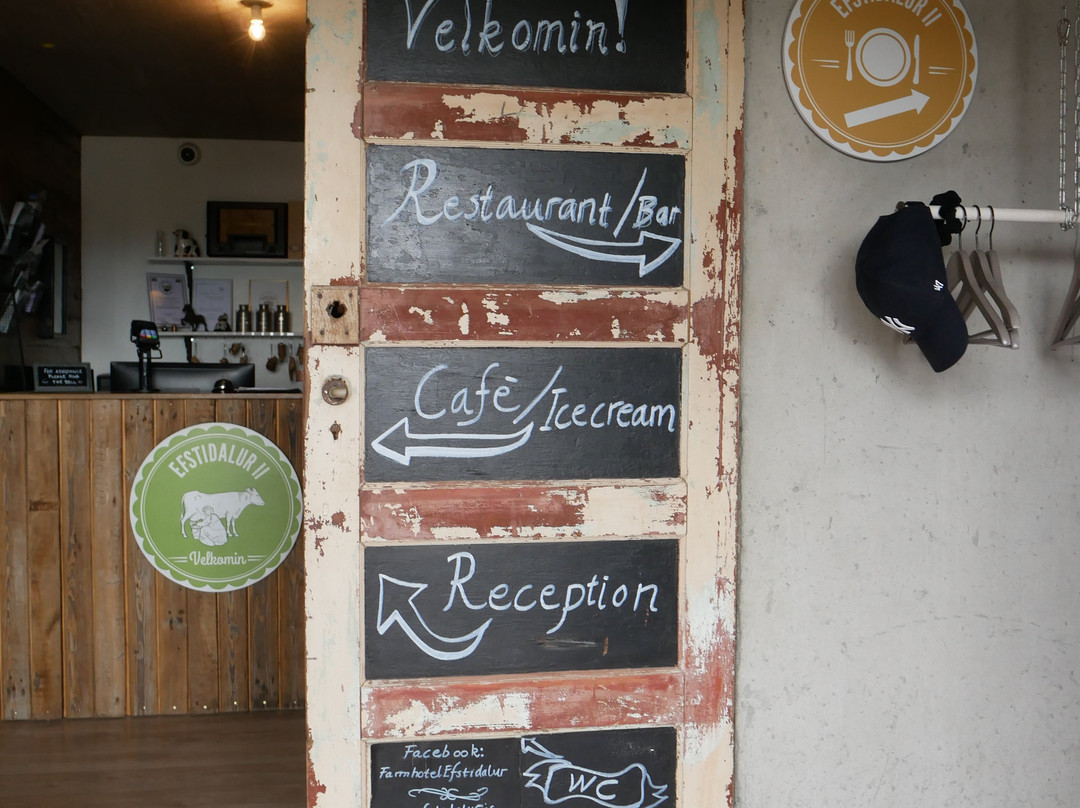 Velkomin!
Restaurant/Bar
Cafè/Icecream
Reception
Facebook:
FarmhotelEfstidalur
WC
EFSTIDALUR II
EFSTIDALUR II
Velkomin
FOR ASSISTANCE
PLEASE RING
THE BELL